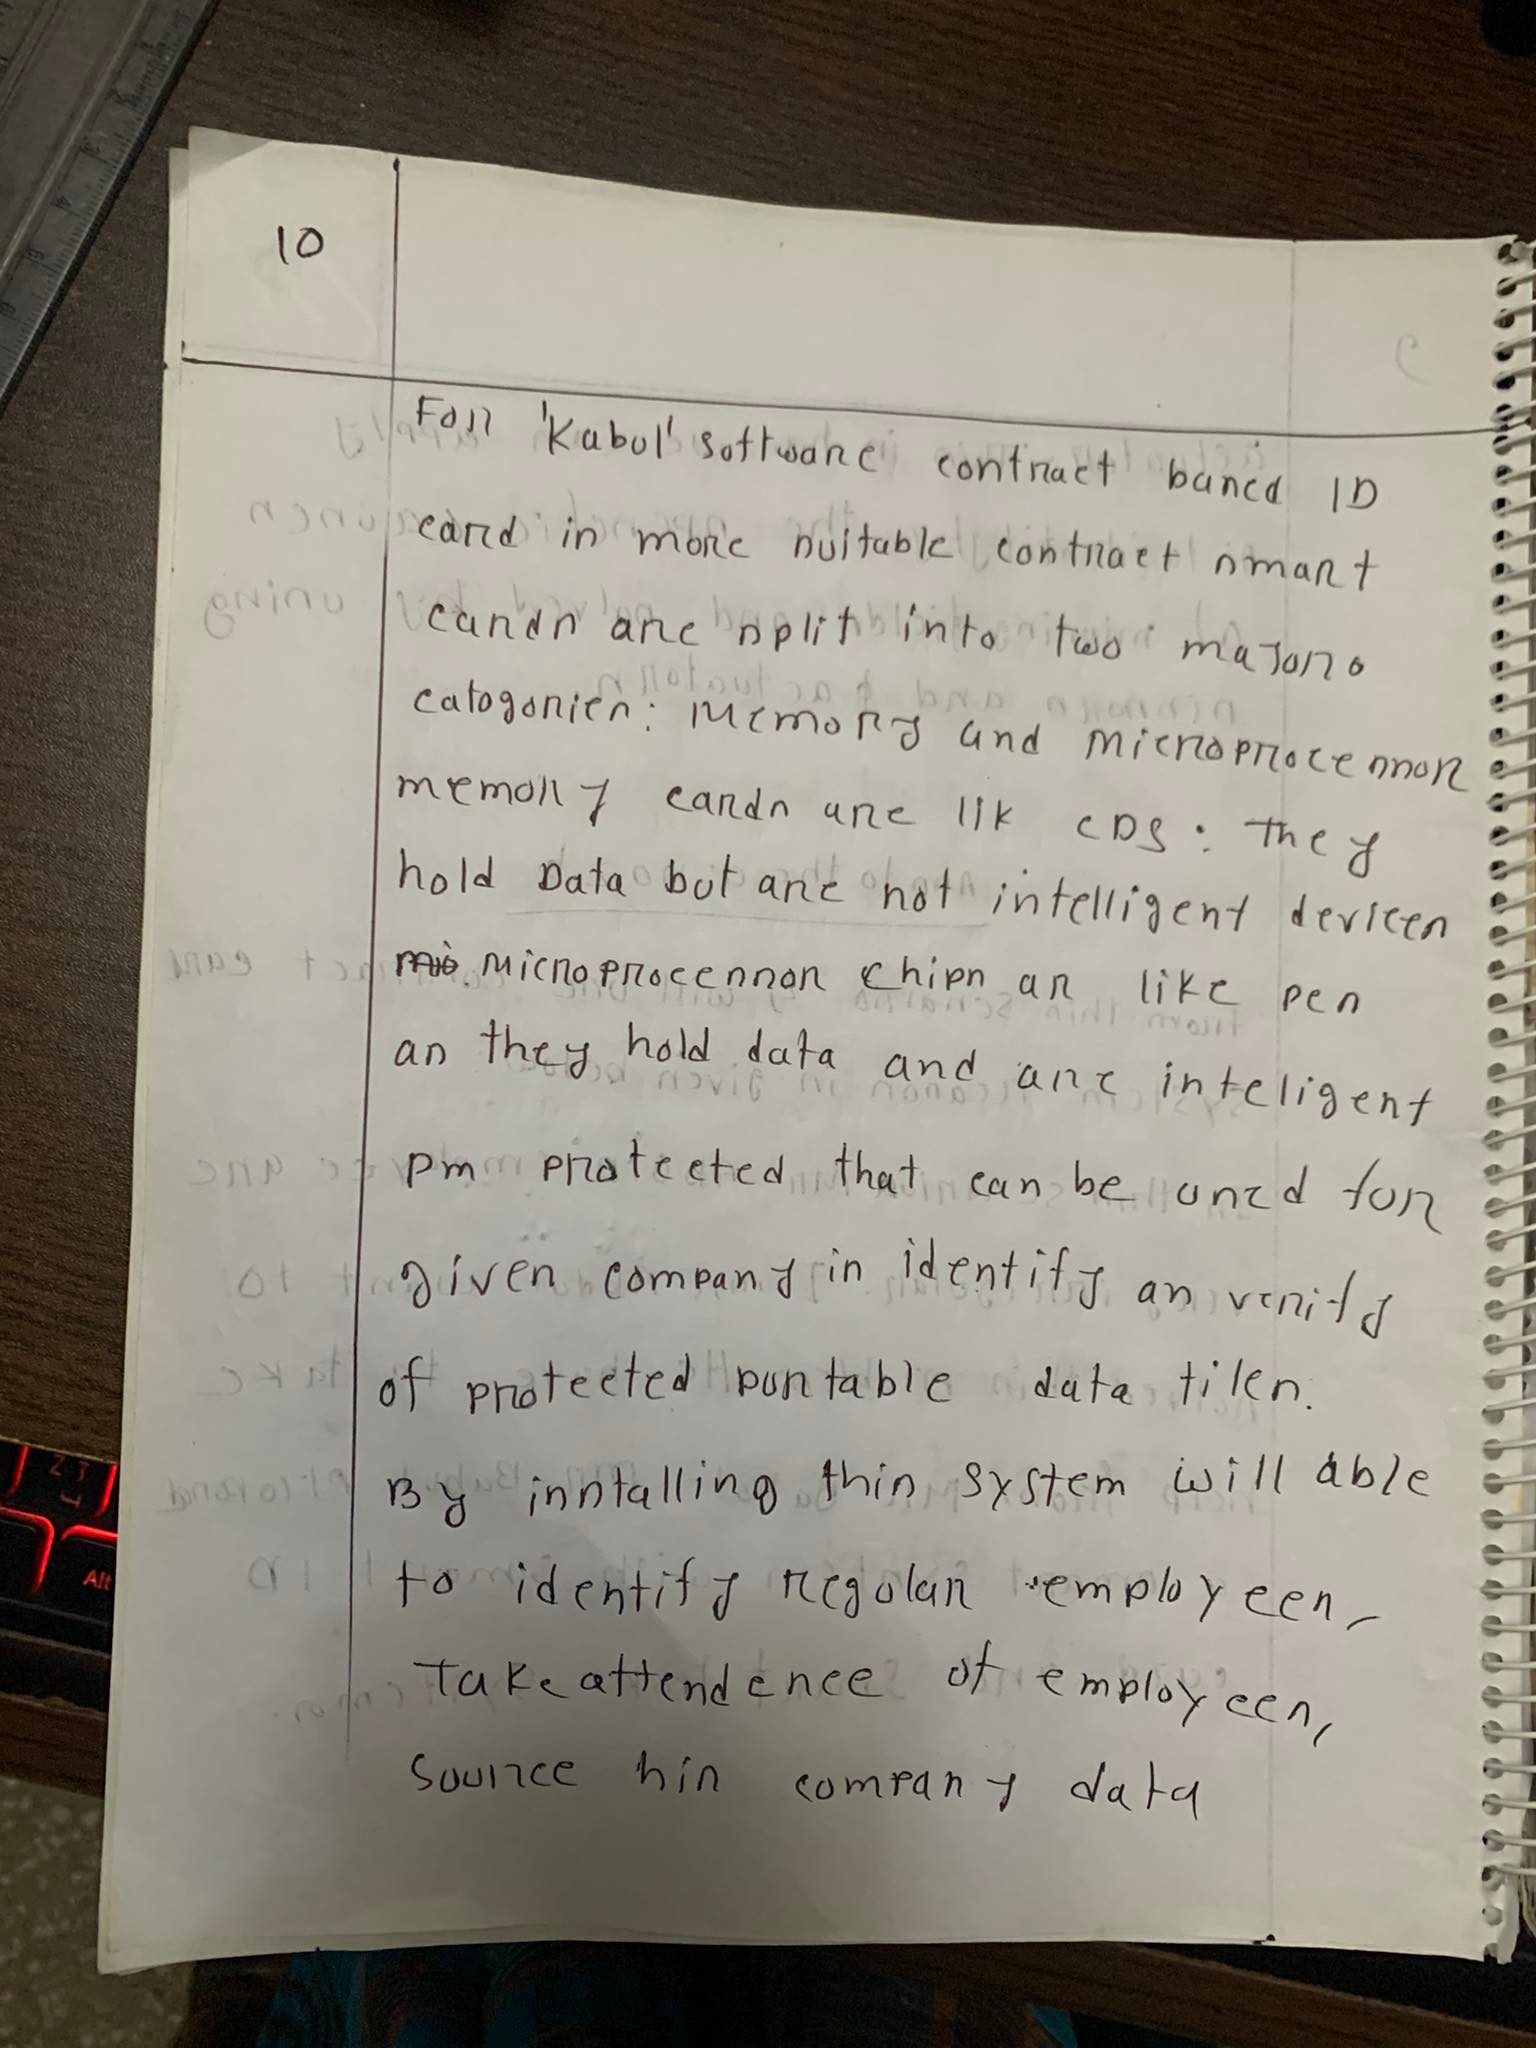 10
For 'Kabul' software contract based ID
card is more suitable contract smart
cards are split into two majoro
catogories: Memory and microprocessor
memory cards are lik CDS: They
hold Data but are not intelligent devices
microprocessor chips ar like pen
as they hold data and are inteligent
pm protected that can be used for
given company is identify as verify
of protected portable data files.
By installing this system will able
to identify regular employees,
Take attendence of employees,
Source his company data